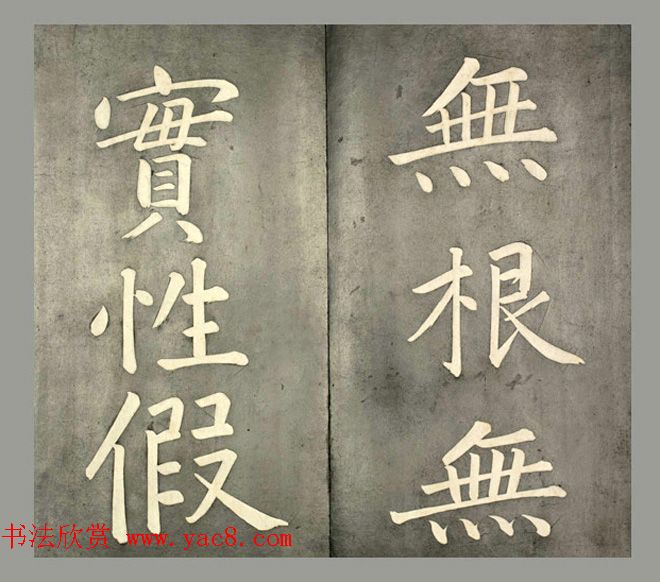 無根無
實性假
书法欣赏 www.yac8.com